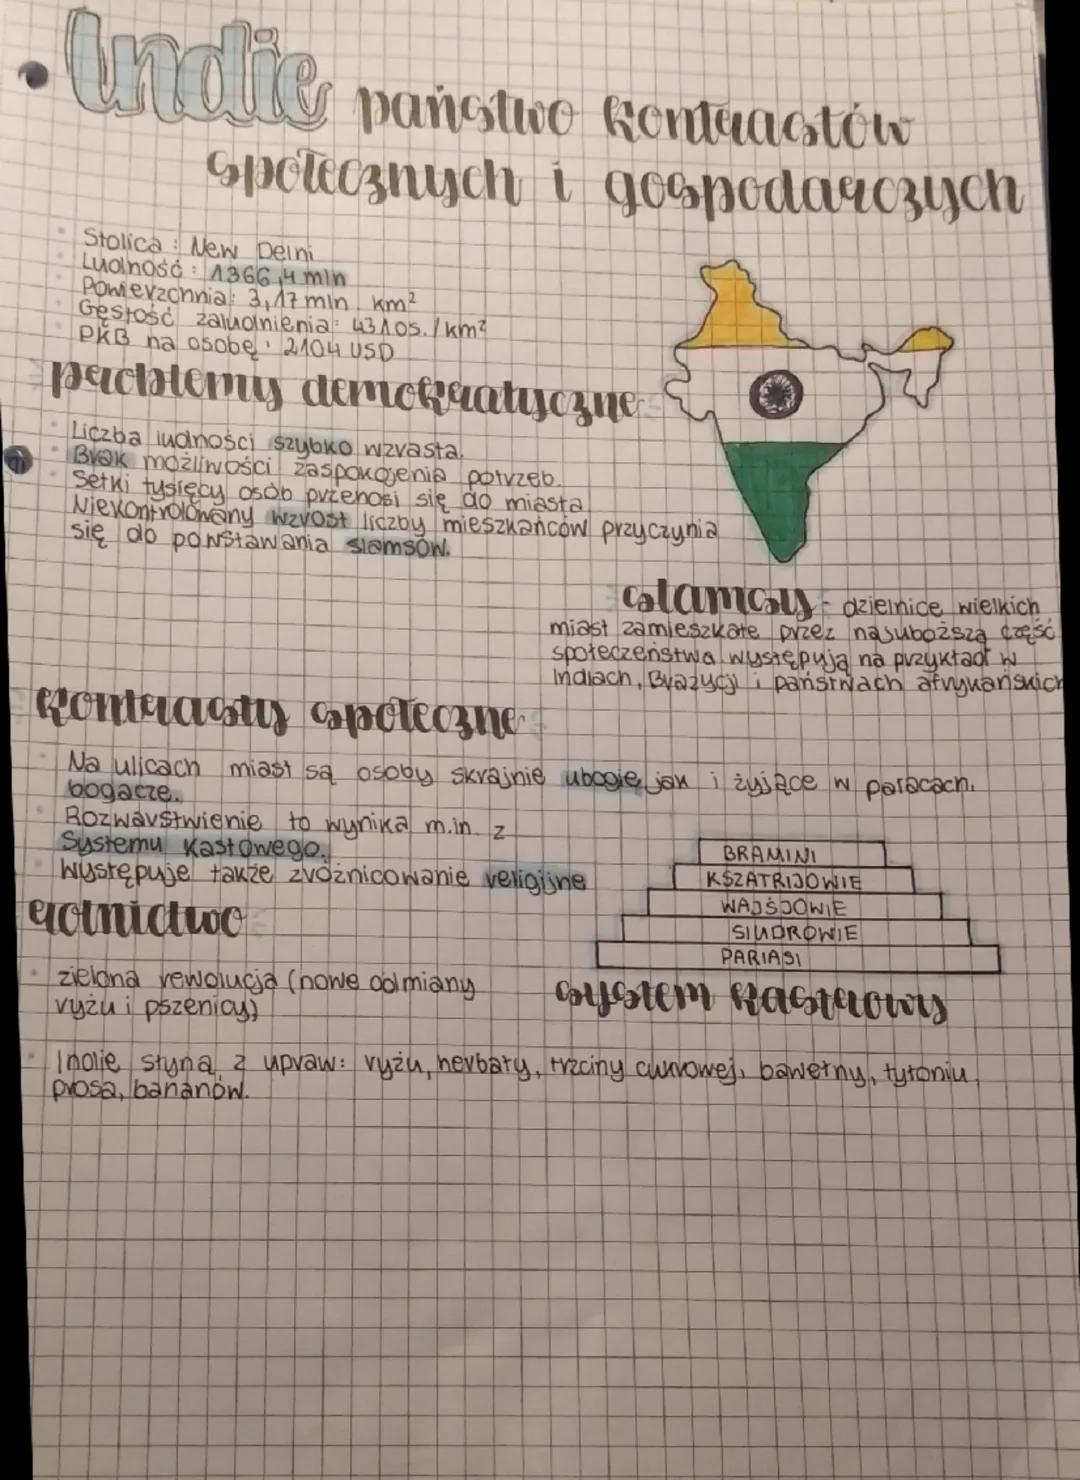 Indie państwo kontrastów
społecznych i gospodarczych
Stolica: New Delhi
Ludność: 1366,4 mln
Powierzchnia: 3,17 mln km²
Gęstość zaludnienia: 431 os./km²
PKB na osobę: 2104 USD
problemy demokratyczne
Liczba ludności szybko wzrasta.
Brak możliwości zaspokojenia potrzeb.
Setki tysięcy osób przenosi się do miasta
Niekontrolowany wzrost liczby mieszkańców przyczynia
się do powstawania slamsów.
slamsy - dzielnice wielkich
miast zamieszkałe przez najuboższą część
społeczeństwa występują na przykład w
Indiach, Brazycji i państwach afrykańskich
kontrasty społeczne
Na ulicach miast są osoby skrajnie ubogie jak i żyjące w pałacach.
bogacze.
Rozwarstwienie to wynika m.in. z
Systemu kastowego.
Występuje także zróżnicowanie religijne
BRAMINI
KSZATRIJOWIE
WAJŚJOWIE
SIUDROWIE
PARIASI
system kastrowy
rolnictwo
zielona rewolucja (nowe odmiany
ryżu i pszenicy)
Indie słyną z upraw: ryżu, herbaty, trzciny cukrowej, bawełny, tytoniu,
prosa, bananów.